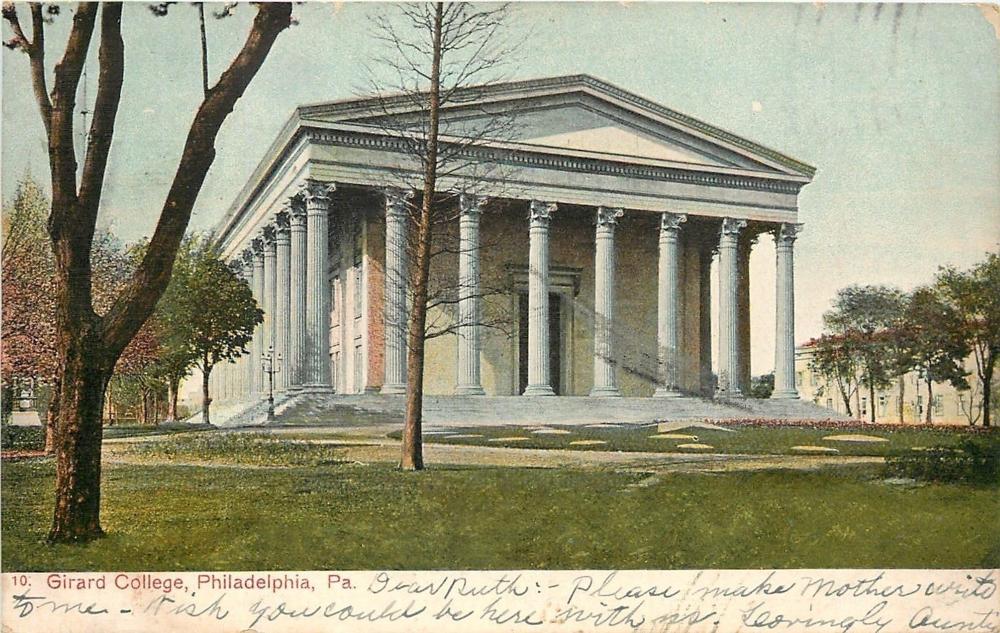 10. Girard College, Philadelphia, Pa. Dear Ruth:- Please make Mother write
to me - Wish you could be here with us. Lovingly Aunty